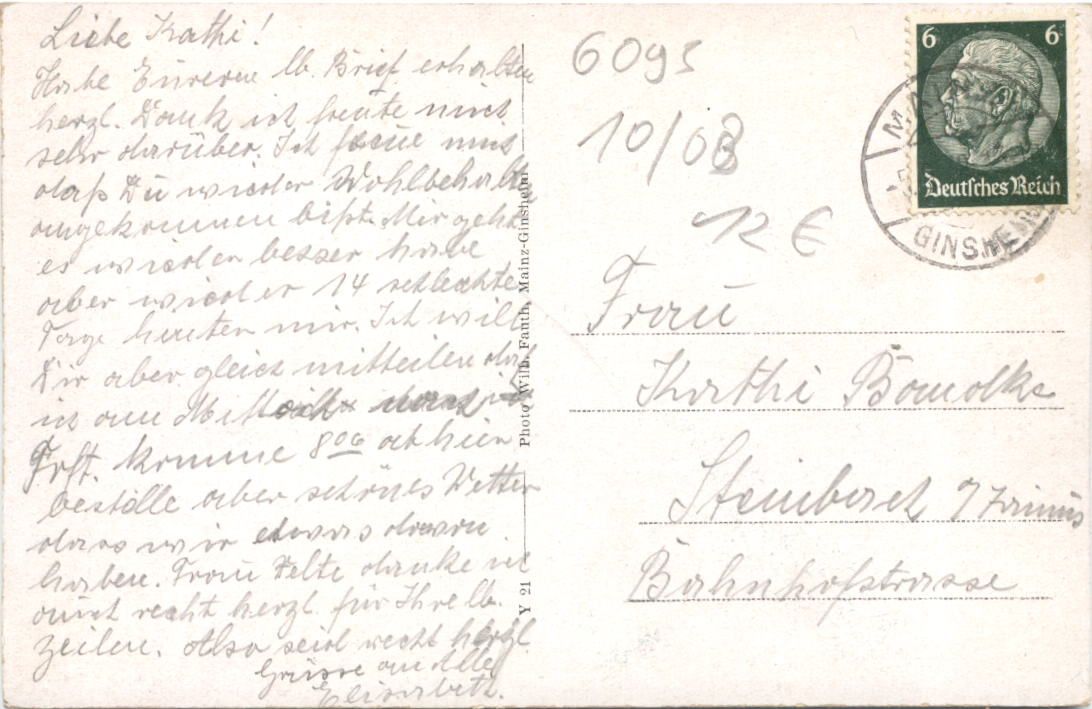 Liebe Kathi!
Habe Eueren lb. Brief erhalten
herzl. Dank ich freute mich
sehr darüber. Ich freue mich
daß Du wieder Wohlbehalten
angekommen bißt. Mir geht
es wieder besser habe
aber wieder 14 schlechte
Tage hinter mir. Ich will
Dir aber gleich mitteilen daß
ich am
Frft. komme 8 06 ab hier
bestelle aber schönes Wetter
dass wir etwas davon
haben. Frau danke ich
auch recht herzl. für Ihre lb.
Zeilen. Also seid recht herzl.
Grüsse an Alle
Elisabeth.
Y 21 Photo Wilh. Fauth, Mainz-Ginsheim
6093
10/08
12 €
6 6
Deutsches Reich
GINSHEIM
Frau
Kathi
Steinbach / Taunus
Bahnhofstrasse